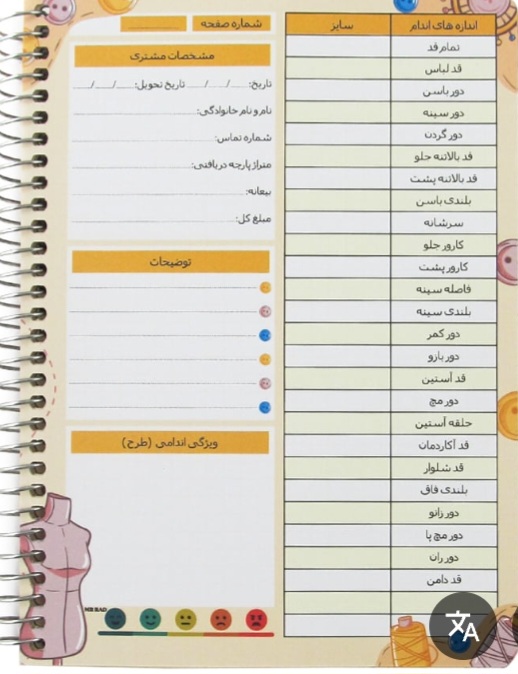 اندازه های اندام	سایز
تمام قد
قد لباس
دور باسن
دور سینه
دور گردن
قد بالاتنه جلو
قد بالاتنه پشت
بلندی باسن
سرشانه
کارور جلو
کارور پشت
فاصله سینه
بلندی سینه
دور کمر
دور بازو
قد آستین
دور مچ
حلقه آستین
قد آکاردمان
قد شلوار
بلندی فاق
دور زانو
دور مچ پا
دور ران
قد دامن
شماره صفحه
مشخصات مشتری
تاریخ: / / تاریخ تحویل: / /
نام و نام خانوادگی:
شماره تماس:
متراژ پارچه دریافتی:
بیعانه:
مبلغ کل:
توضیحات
ویژگی اندامی (طرح)
MR RAD